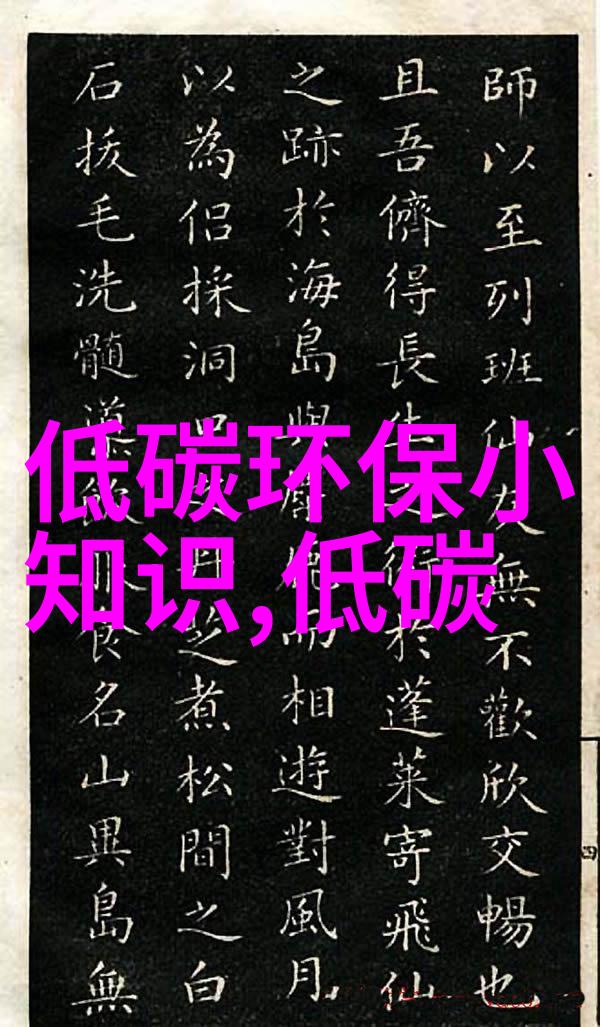 師以至列班仙友無不歡欣交暢也
且吾儕得長生之術於蓬萊寄飛仙
之跡於海島與而相遊對風月
以為侶採洞口之芝煮松間之白
石拔毛洗髓飲食名山異島無
低碳环保小
知识,低碳